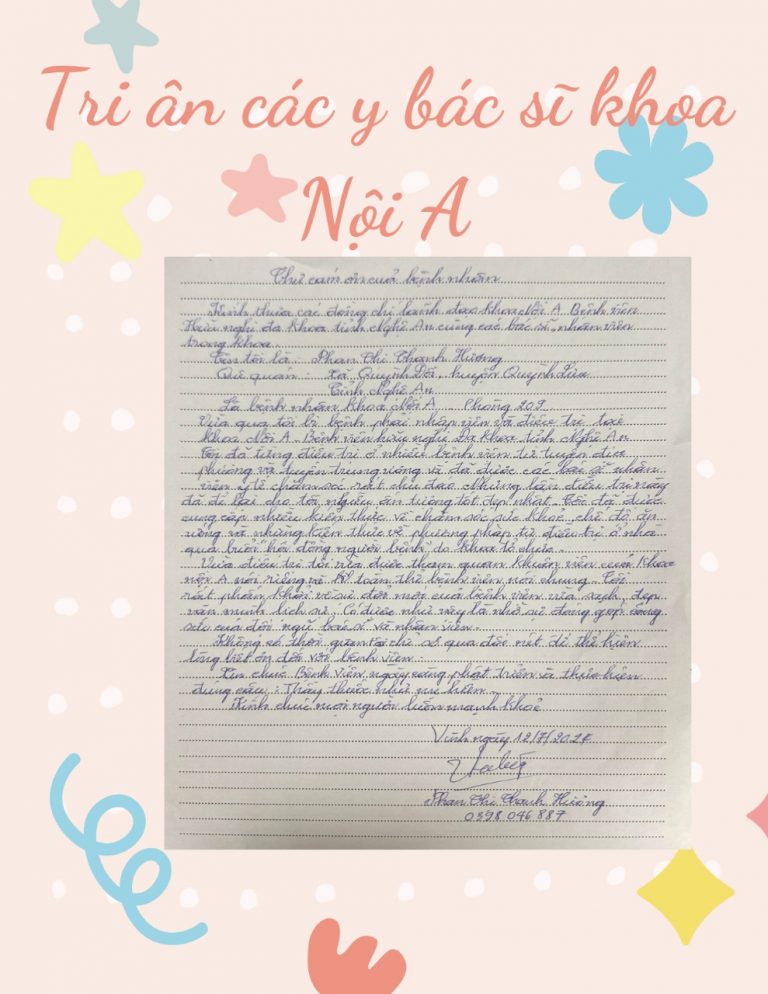 Tri ân các y bác sĩ khoa
Nội A
Thư cảm ơn của bệnh nhân
Kính thưa các đồng chí lãnh đạo khoa Nội A Bệnh viện
Hữu nghị đa khoa tỉnh Nghệ An cùng các bác sĩ, nhân viên
trong khoa
Tên tôi là : Phan Thị Thanh Hương
Quê quán : Xã Quỳnh Đôi, huyện Quỳnh Lưu
Tỉnh Nghệ An
Là bệnh nhân khoa Nội A - Phòng 209
Vừa qua tôi bị bệnh phải nhập viện và điều trị tại
khoa Nội A - Bệnh viện hữu nghị Đa khoa tỉnh Nghệ An
Tôi đã từng điều trị ở nhiều bệnh viện từ tuyến địa
phương và tuyến trung ương và đã được các bác sĩ nhân
viên y tế chăm sóc rất chu đáo Nhưng lần điều trị này
đã để lại cho tôi nhiều ấn tượng tốt đẹp nhất. Tôi đã được
cung cấp nhiều kiến thức về chăm sóc sức khoẻ, chế độ ăn
uống và những kiến thức về phương pháp tự điều trị ở nhà
qua hội đồng người bệnh do khoa tổ chức.
Vừa điều trị tôi vừa được tham quan khuôn viên của khoa
nội A nói riêng và toàn thể bệnh viện nói chung. Tôi
rất phấn khởi về sự đổi mới của bệnh viện vừa sạch, đẹp
văn minh lịch sự. Có được như vậy là nhờ sự đóng góp công
sức của đội ngũ bác sĩ và nhân viên.
Không có thời gian tôi chỉ sơ qua đôi nét để thể hiện
lòng biết ơn đối với bệnh viện
Xin chúc Bệnh Viện ngày càng phát triển và thực hiện
đúng câu : Thầy thuốc như mẹ hiền
Kính chúc mọi người luôn mạnh khoẻ
Vinh ngày 12/7/2024
Phan Thị Thanh Hương
0398 046 887